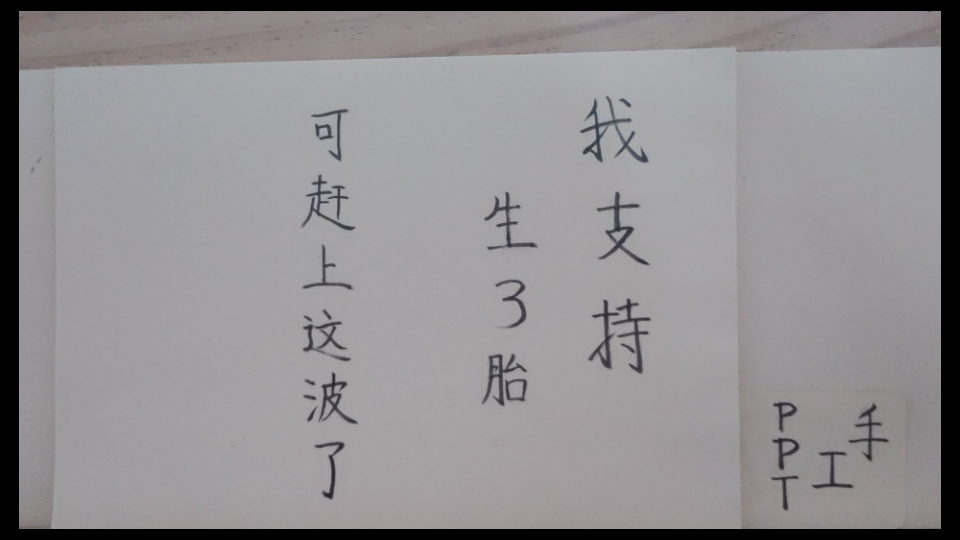 我支持
生3胎
可赶上这波了
手
工
PPT